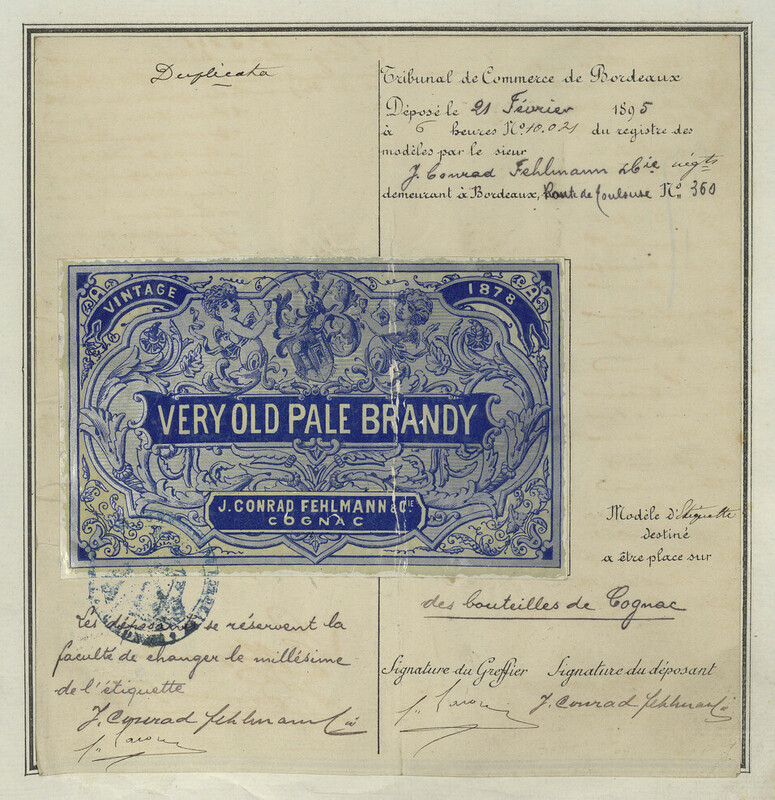 Duplicata
Tribunal de Commerce de Bordeaux
Déposé le 21 Février 1895
à 6 heures Nº 10.021 du registre des
modèles par le sieur
J. Conrad Fehlmann & Cie négts
demeurant à Bordeaux, Route de Toulouse Nº 360
VINTAGE
1878
VERY OLD PALE BRANDY
J. CONRAD FEHLMANN & CIE
COGNAC
Modèle d'étiquette
destiné
a être place sur
des bouteilles de Cognac
Les déposants se réservent la
faculté de changer le millésime
de l'étiquette
J. Conrad Fehlmann & Cie
Signature du Greffier
Signature du déposant
J. Conrad Fehlmann & Cie